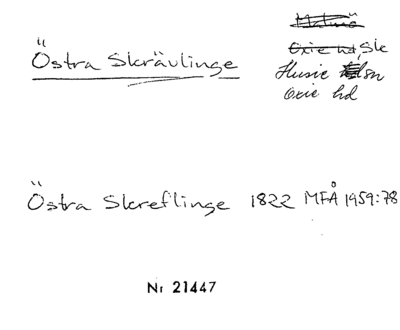 Östra Skrävlinge
Malmö
Oxie hd, Sk
Husie lsn
Oxie hd
Östra Skreflinge 1822 MFÅ 1959:78
Nr 21447